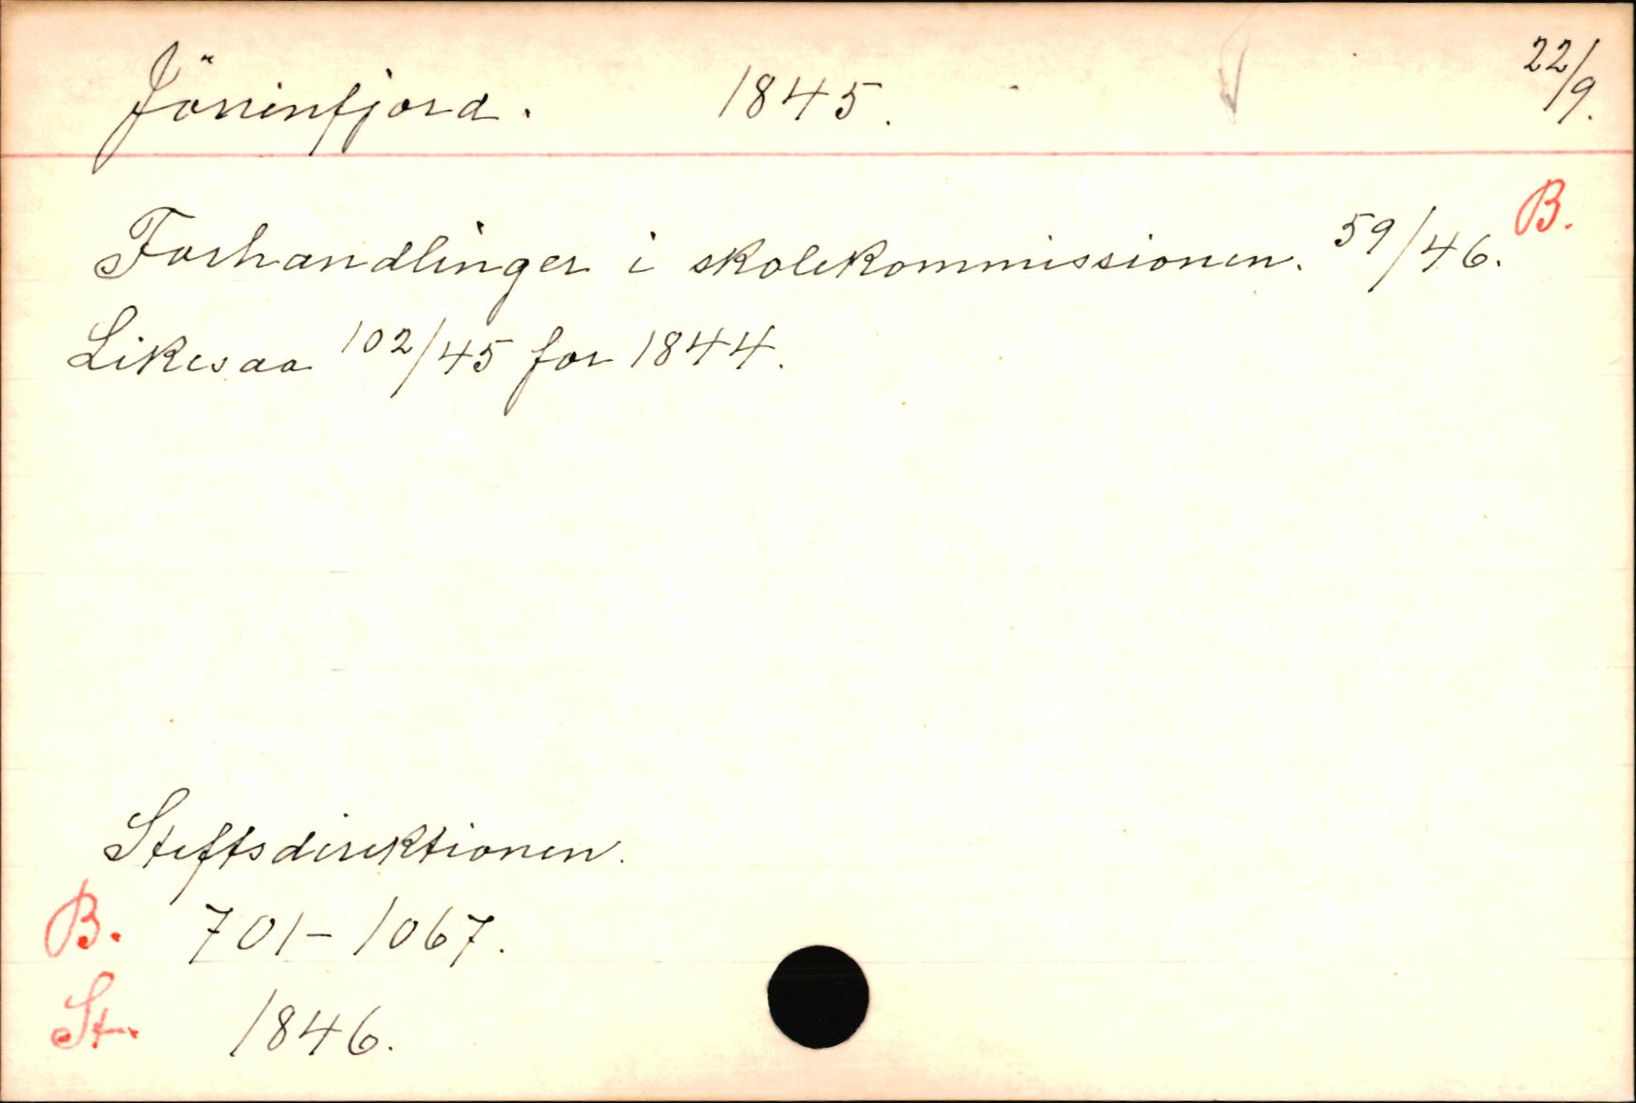 Jörinfjord. 1845. 22/9.
Forhandlinger i skolekommissionen. 59/46. B.
Likesaa 102/45 for 1844.
Stiftsdirektionen.
B. 701-1067.
St. 1846.